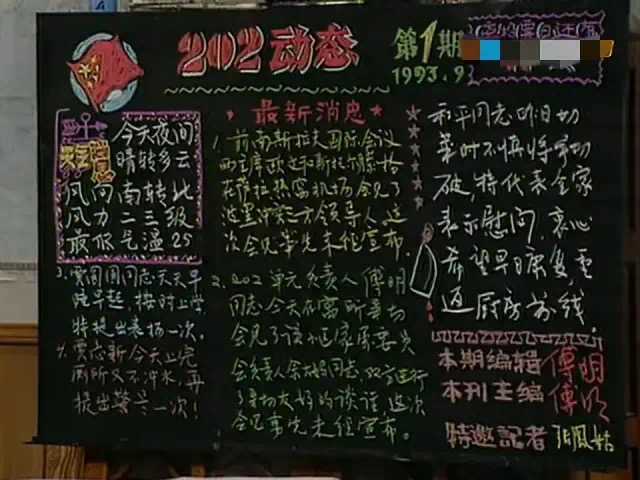 202动态
第1期
1993.9
天气
今天夜间
晴转多云
风向南转北
风力二三级
最低气温25
最新消息
1.前南斯拉夫国际会议
两主席欧文和斯托尔滕格
在萨拉热窝机场会见了
波黑冲突三方领导人,这
次会见事先未经宣布.
2.202单元负责人傅明
同志今天在寓所客场
会见了该地区居委会
负责人余大妈同志,双方进行
了亲切友好的谈话,这次
会见事先未经宣布.
3.贾圆圆同志天天早
晚早起,按时上学
特提出表扬一次.
4.贾志新今天上完
厕所又不冲水,再
提出警告一次!
和平同志昨日切
菜时不慎将手切
破,特代表全家
表示慰问,衷心
希望早日康复,重
返厨房前线.
本期编辑 傅明
本刊主编 傅明
特邀記者 张凤姑